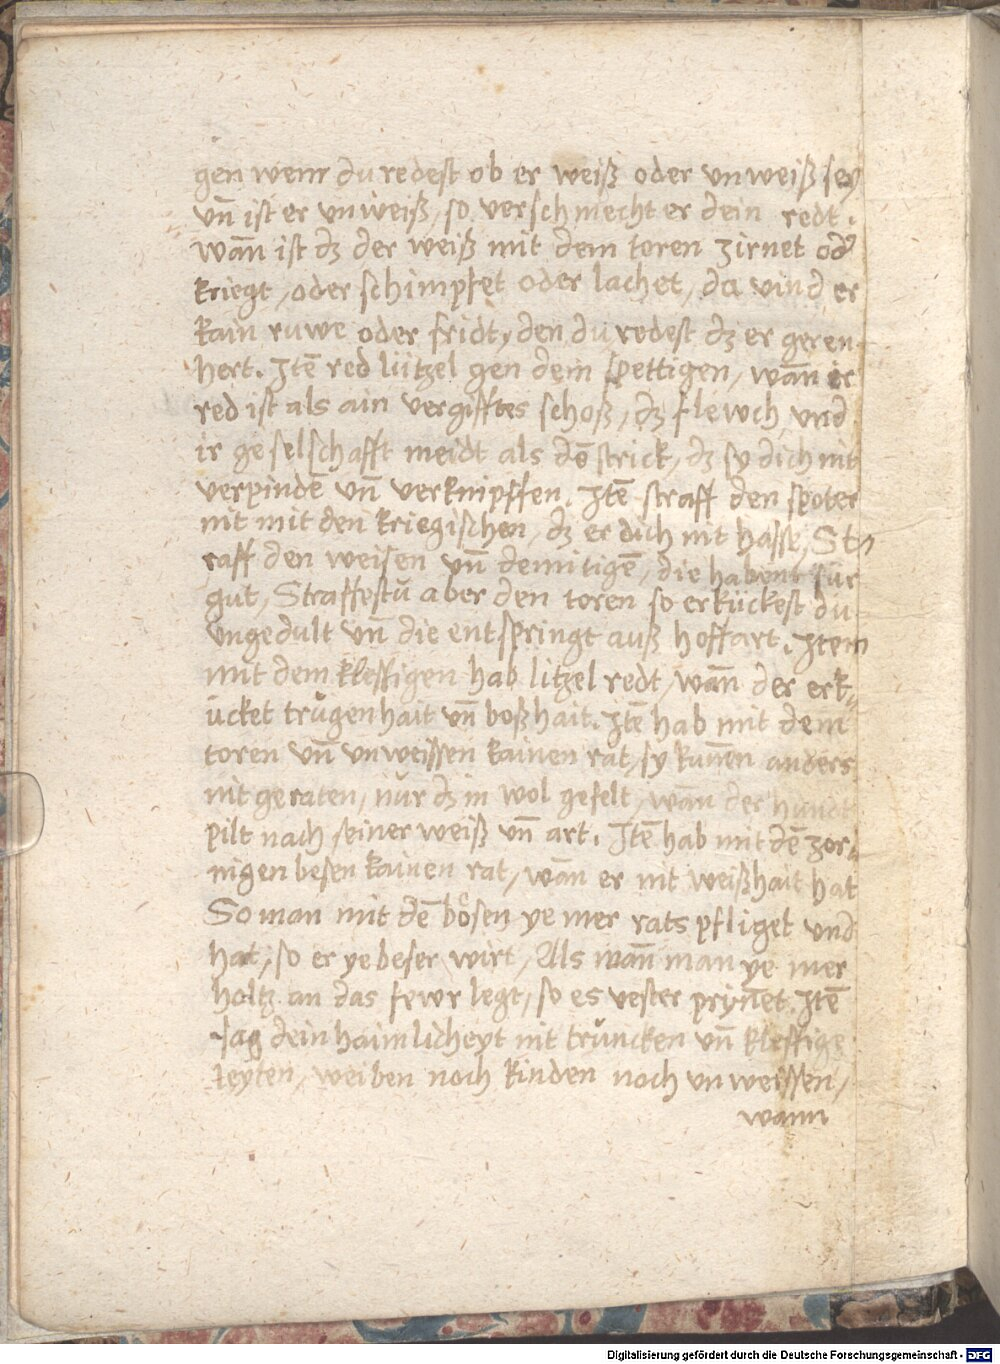 gen wenr du redest ob er weiß oder vnweiß sey
vn̄ ist er vnweiß, so verschmecht er dein redt.
wan̄ ist dʒ der weiß mit dem toren zirnet od'
kriegt, oder schimpfet oder lachet, da vind er
kain ruwe oder fridt, den du redest dʒ er geren
hert. Itē red lützel gen dem spettigen, wan̄ ir
red ist als ain vergifftes schoß, dʒ flewch, vnd
ir geselschafft meidt als dē strick, dʒ sy dich nit
verpindē vn̄ verknipffen. Itē straff den spoter
nit mit den kriegischen, dʒ er dich nit hasse, St⸗
raff den weisen vn̄ demitigē, die habent für
gut, Straffestu aber den toren so erkückest du
vngedult vn̄ die entspringt auß hoffart. Item
mit dem kleffigen hab litzel redt, wan̄ der erk⸗
ücket trŭgenhait vn̄ boßhait. Itē hab mit dem
toren vn̄ vnweissen kainen rat, sy kun̄en anders
nit geraten, nŭr dʒ in wol gefelt, wan̄ der hundt
pilt nach seiner weiß vn̄ art. Itē hab mit dē zor⸗
nigen besen kainen rat, wan̄ er nit weißhait hat
So man mit dē bösen ye mer rats pfliget vnd
hat, so er ye beser wirt, Als wan̄ man ye mer
holtz an das fewr legt, so es vester prin̄et. Itē
sag dein haimlicheyt nit trŭncken vn̄ kleffige
leyten, weiben noch kinden noch vnweissen,
wann
Digitalisierung gefördert durch die Deutsche Forschungsgemeinschaft - DFG